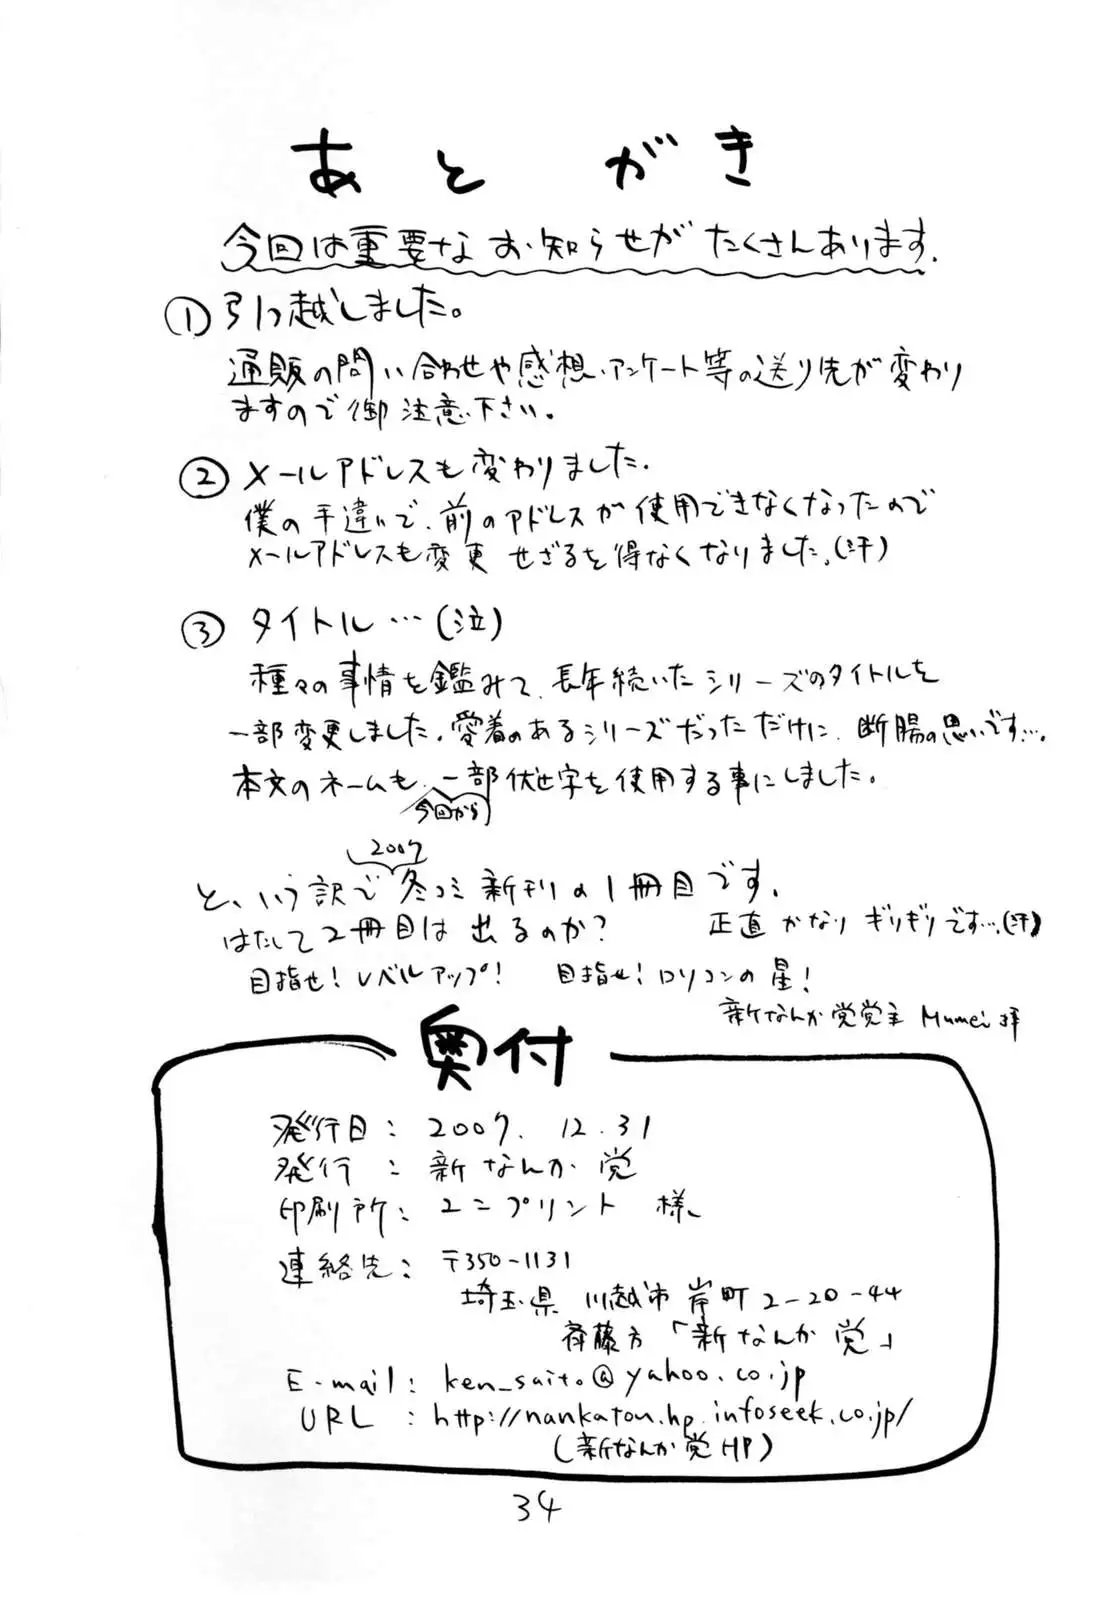 あとがき
今回は重要なお知らせがたくさんあります.
① 引っ越しました。
通販の問い合わせや感想、アンケート等の送り先が変わり
ますので御注意下さい。
② メールアドレスも変わりました.
僕の手違いで、前のアドレスが使用できなくなったので
メールアドレスも変更せざるを得なくなりました。(汗)
③ タイトル…(泣)
種々の事情を鑑みて、長年続いたシリーズのタイトルを
一部変更しました。愛着のあるシリーズだっただけに、断腸の思いです…。
本文のネームも、一部伏せ字を使用する事にしました。
今回から
2007
と、いう訳で冬コミ新刊の1冊目です.
はたして2冊目は出るのか? 正直かなりギリギリです…(汗)
目指せ!レベルアップ! 目指せ!ロリコンの星!
新なんか党党主 Mumei 拝
奥付
発行日: 2007. 12. 31
発行 : 新なんか党
印刷所: ユニプリント 様
連絡先: 〒350-1131
埼玉県 川越市 岸町2-20-44
斉藤方「新なんか党」
E-mail: ken_saito@yahoo.co.jp
URL : http://nankatou.hp.infoseek.co.jp/
(新なんか党HP)
34